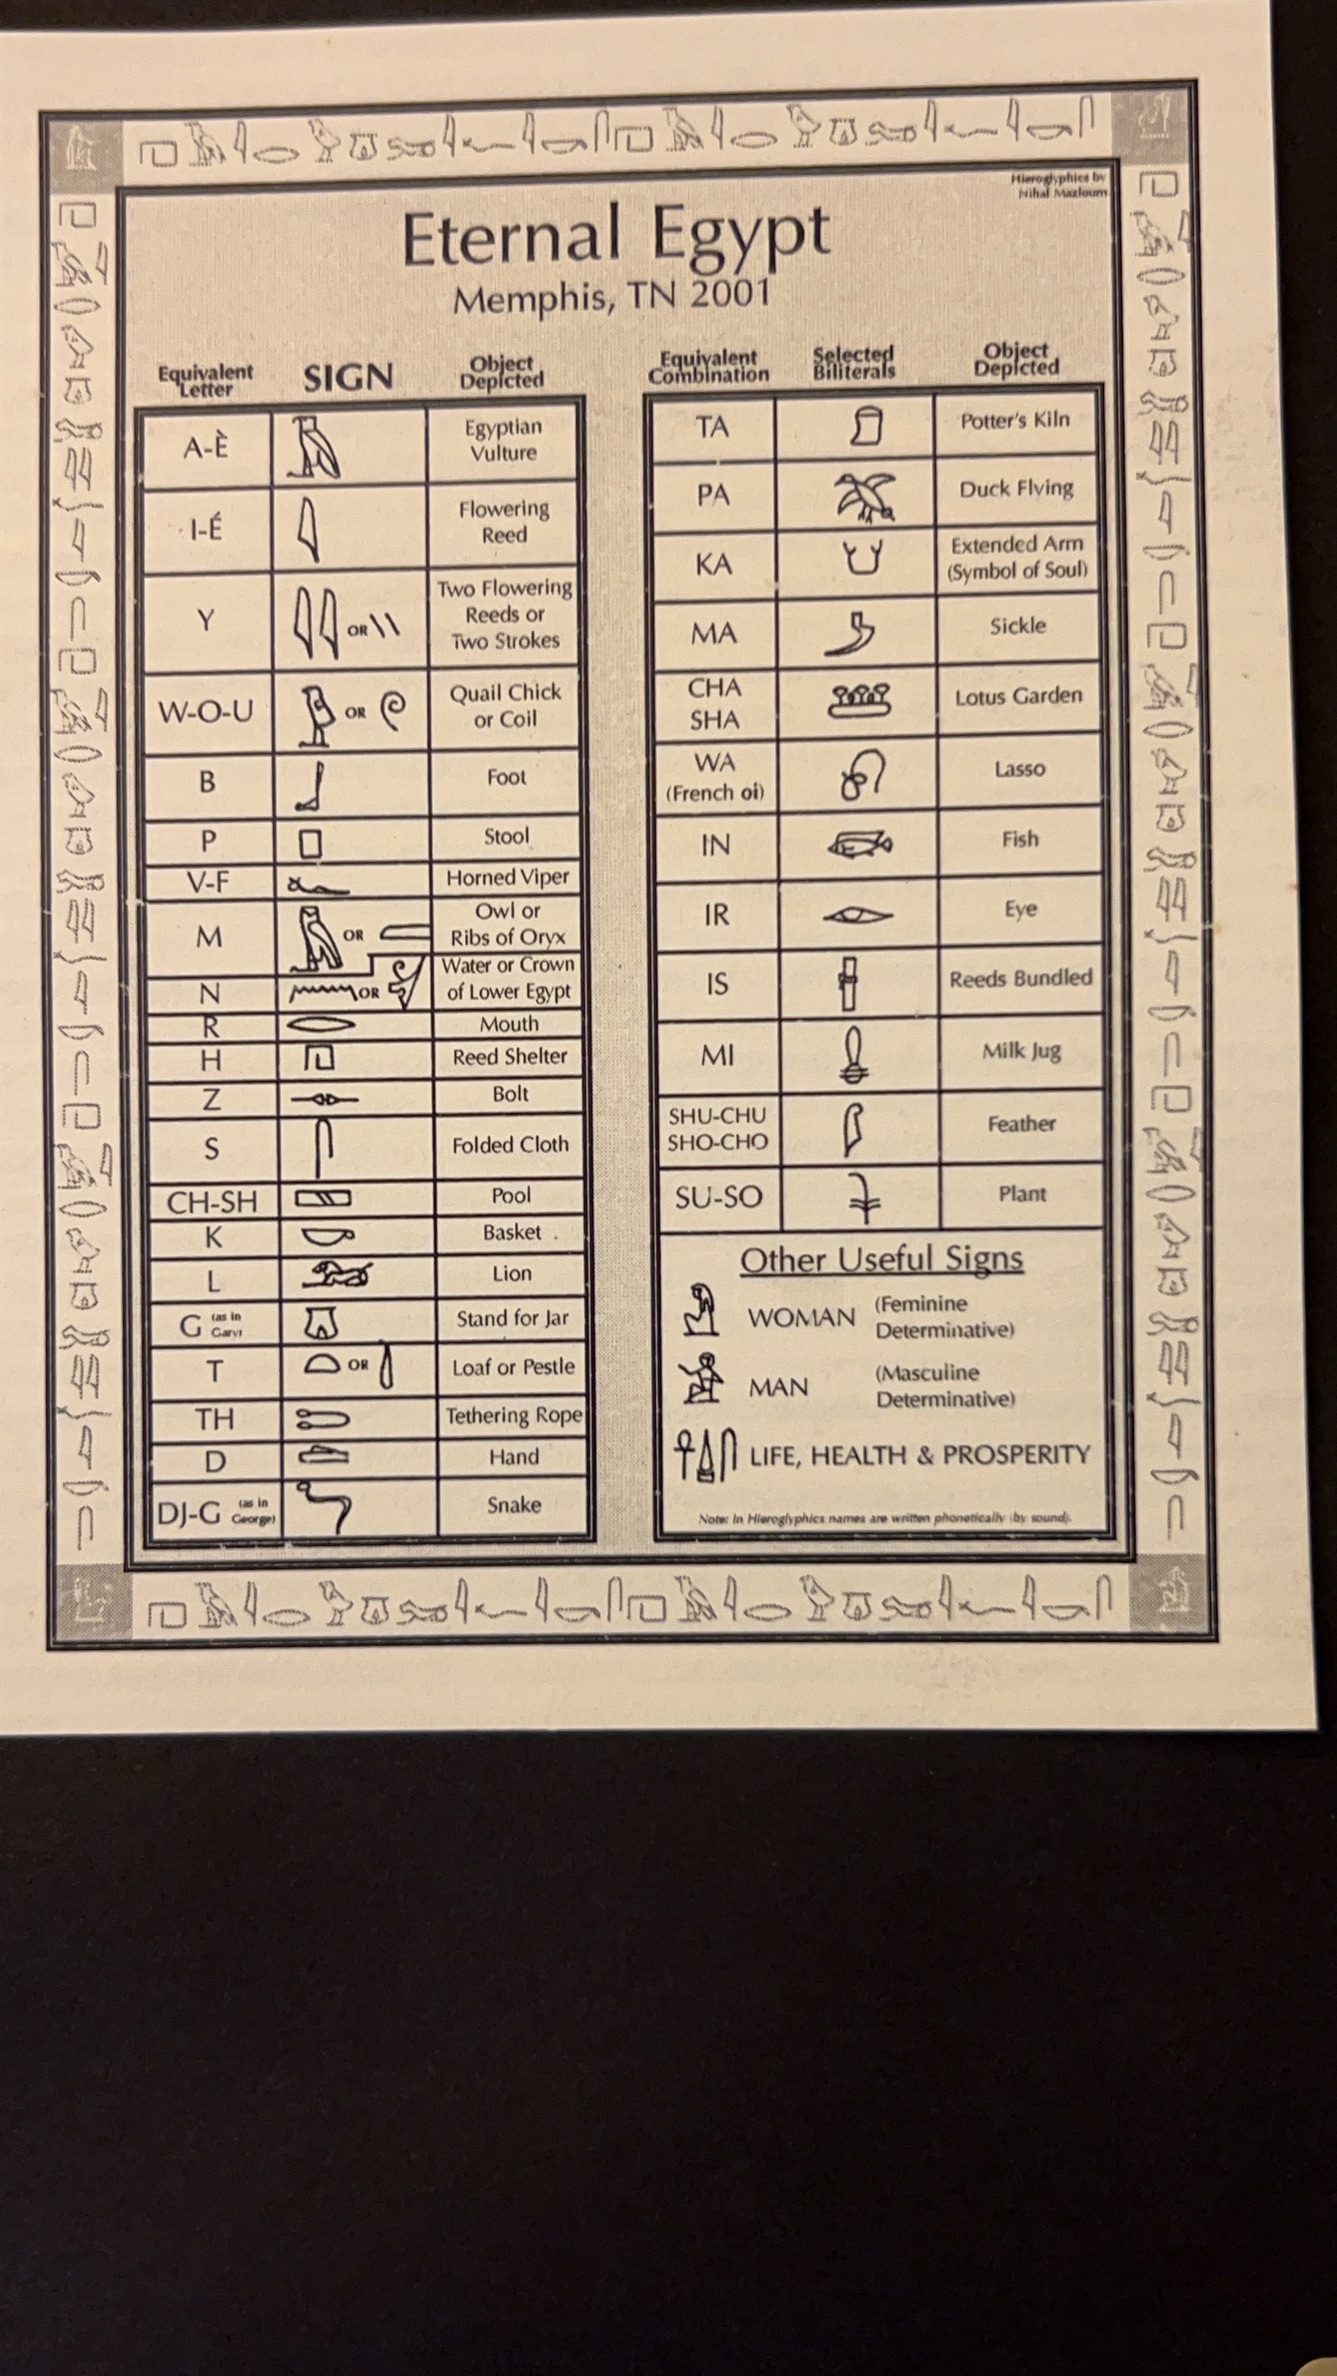 Hieroglyphics by
Nihal Mazloum
Eternal Egypt
Memphis, TN 2001
Equivalent Letter SIGN Object Depicted
A-È Egyptian Vulture
I-É Flowering Reed
Y OR Two Flowering Reeds or Two Strokes
W-O-U OR Quail Chick or Coil
B Foot
P Stool
V-F Horned Viper
M OR Owl or Ribs of Oryx
N OR Water or Crown of Lower Egypt
R Mouth
H Reed Shelter
Z Bolt
S Folded Cloth
CH-SH Pool
K Basket
L Lion
G (as in Gary) Stand for Jar
T OR Loaf or Pestle
TH Tethering Rope
D Hand
DJ-G (as in George) Snake
Equivalent Combination Selected Biliterals Object Depicted
TA Potter's Kiln
PA Duck Flying
KA Extended Arm (Symbol of Soul)
MA Sickle
CHA SHA Lotus Garden
WA (French oi) Lasso
IN Fish
IR Eye
IS Reeds Bundled
MI Milk Jug
SHU-CHU SHO-CHO Feather
SU-SO Plant
Other Useful Signs
WOMAN (Feminine Determinative)
MAN (Masculine Determinative)
LIFE, HEALTH & PROSPERITY
Note: In Hieroglyphics names are written phonetically (by sound).